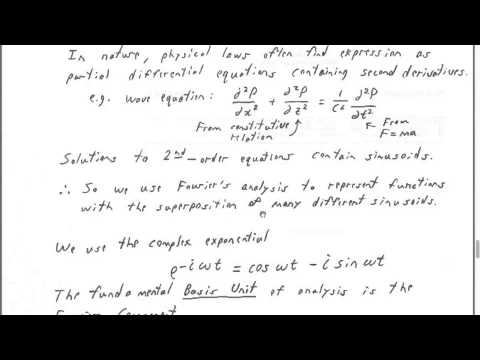 In nature, physical laws often find expression as
partial differential equations containing second derivatives.
e.g. wave equation: ∂²P/∂x² + ∂²P/∂z² = 1/C² ∂²P/∂t²
From constitutive relation
From F=ma
Solutions to 2nd-order equations contain sinusoids.
∴ So we use Fourier's analysis to represent functions
with the superposition of many different sinusoids.
We use the complex exponential
e^-iωt = cos ωt - i sin ωt
The fundamental Basis Unit of analysis is the